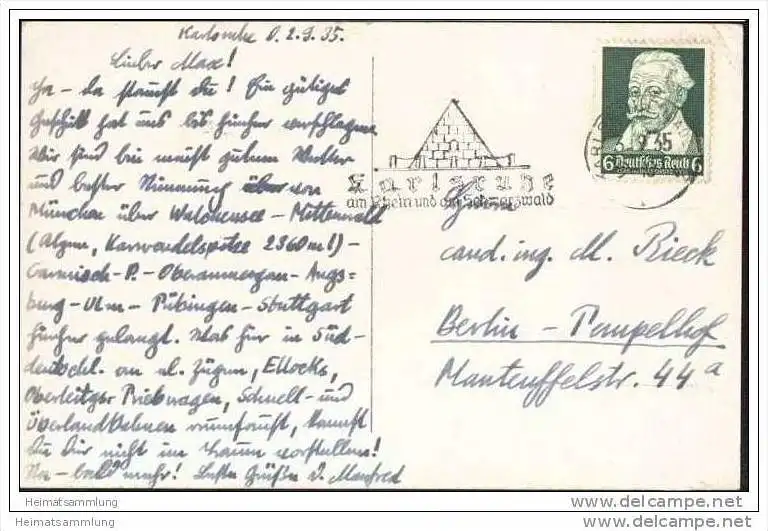 Karlsruhe d. 2.9.35.
Lieber Max!
Ja – da staunst Du! Ein gütiges
Geschick hat uns bis hierher verschlagen.
Wir sind bei meist gutem Wetter
und bester Stimmung über von
München über Walchensee – Mittenwald
(Alpen, Karwendelspitze 2360 m!) –
Garmisch-P. – Oberammergau – Augs-
burg – Ulm – Tübingen – Stuttgart
hierher gelangt. Was hier in Süd-
deutschl. an el. Zügen, Elloks,
Oberleitgs. Triebwagen, Schnell- und
Überlandbahnen rumfaucht, kannst
Du Dir nicht im Traum vorstellen!
Na – bald mehr! Beste Grüße D. Manfred
Karlsruhe
am Rhein und am Schwarzwald
35
6 Deutsches Reich 6
Herrn
cand. ing. M. Rieck
Berlin – Tempelhof
Manteuffelstr. 44a
Heimatsammlung
Heimatsammlung
www.delcampe.net
www.delcampe.net